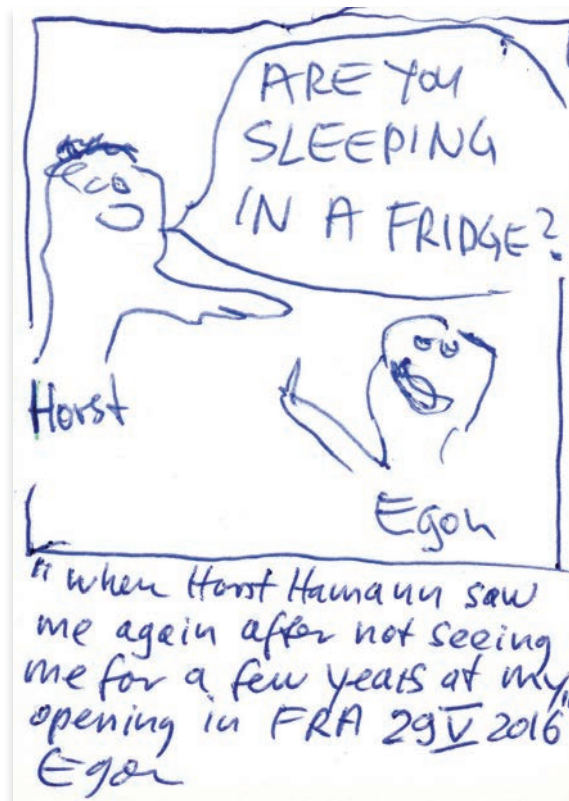 ARE YOU
SLEEPING
IN A FRIDGE?
Horst
Egon
"when Horst Hamann saw
me again after not seeing
me for a few years at my"
opening in FRA 29 V 2016
Egon